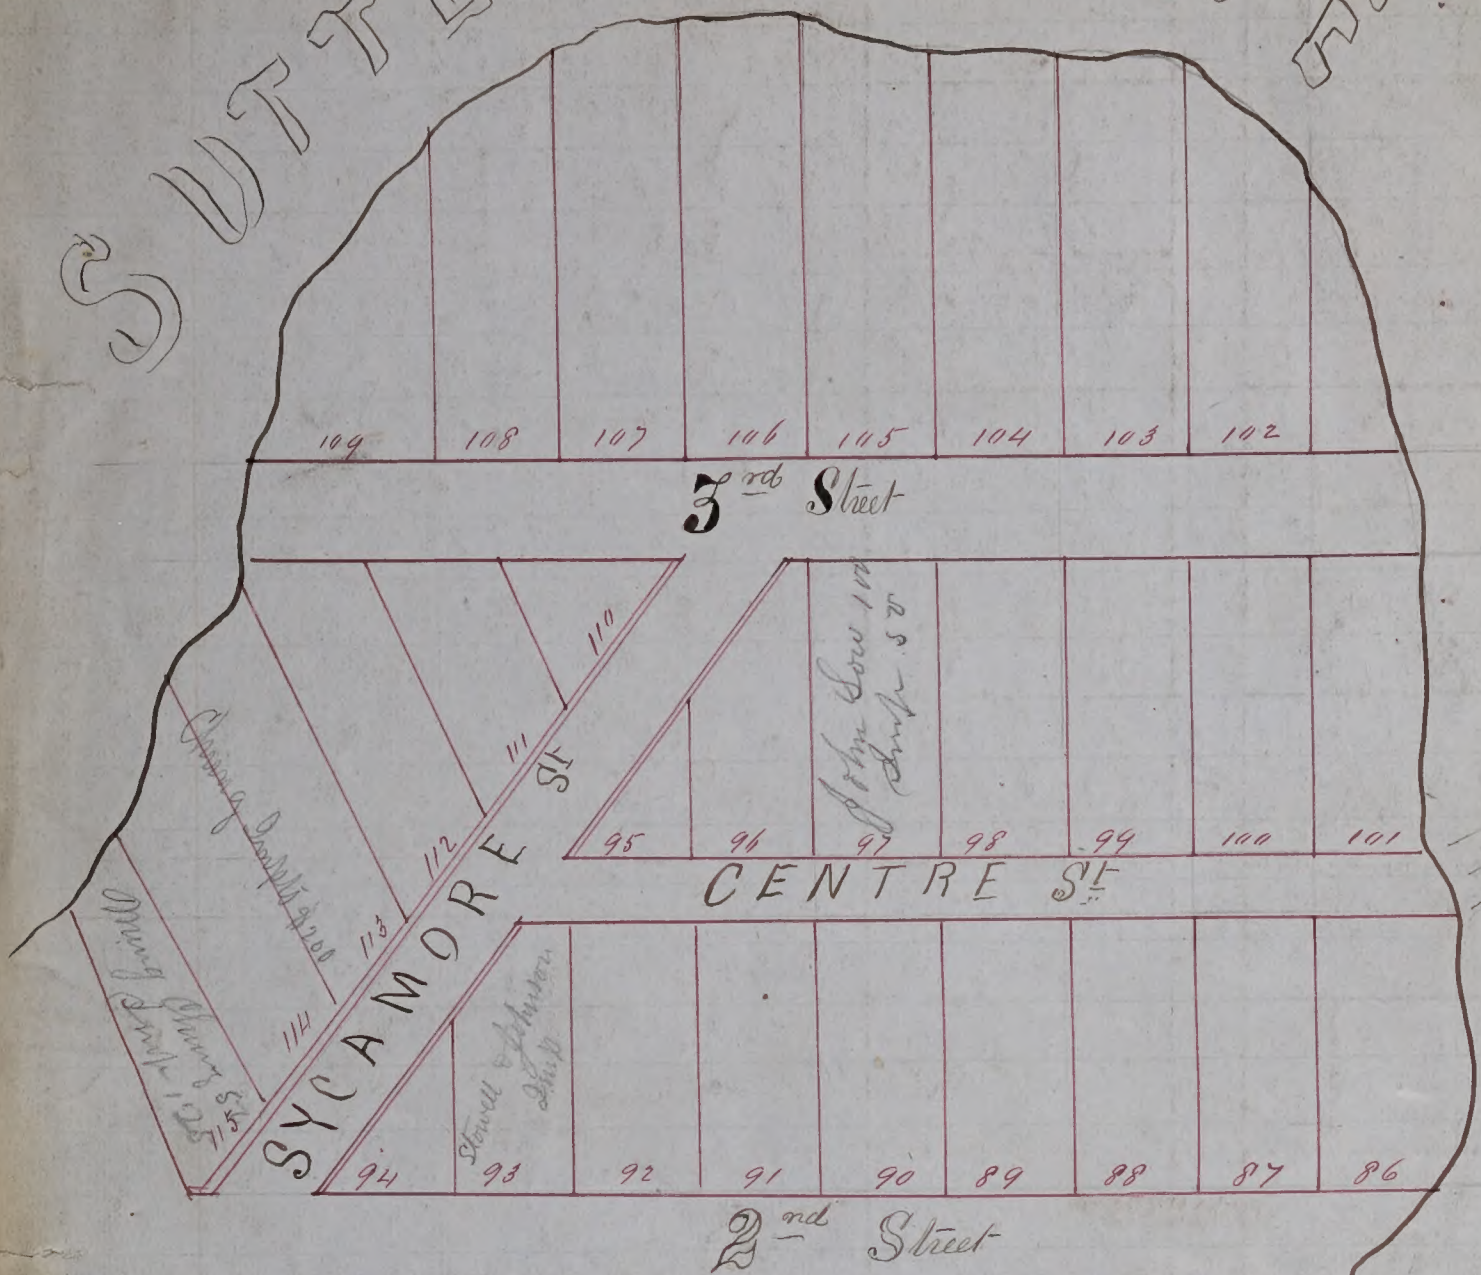 SUTTE
109 108 107 106 105 104 103 102
3rd Street
110
111
112
113
114
115
SYCAMORE St
John
95 96 97 98 99 100 101
CENTRE St
Stowell & Johnson
Imp
94 93 92 91 90 89 88 87 86
2nd Street